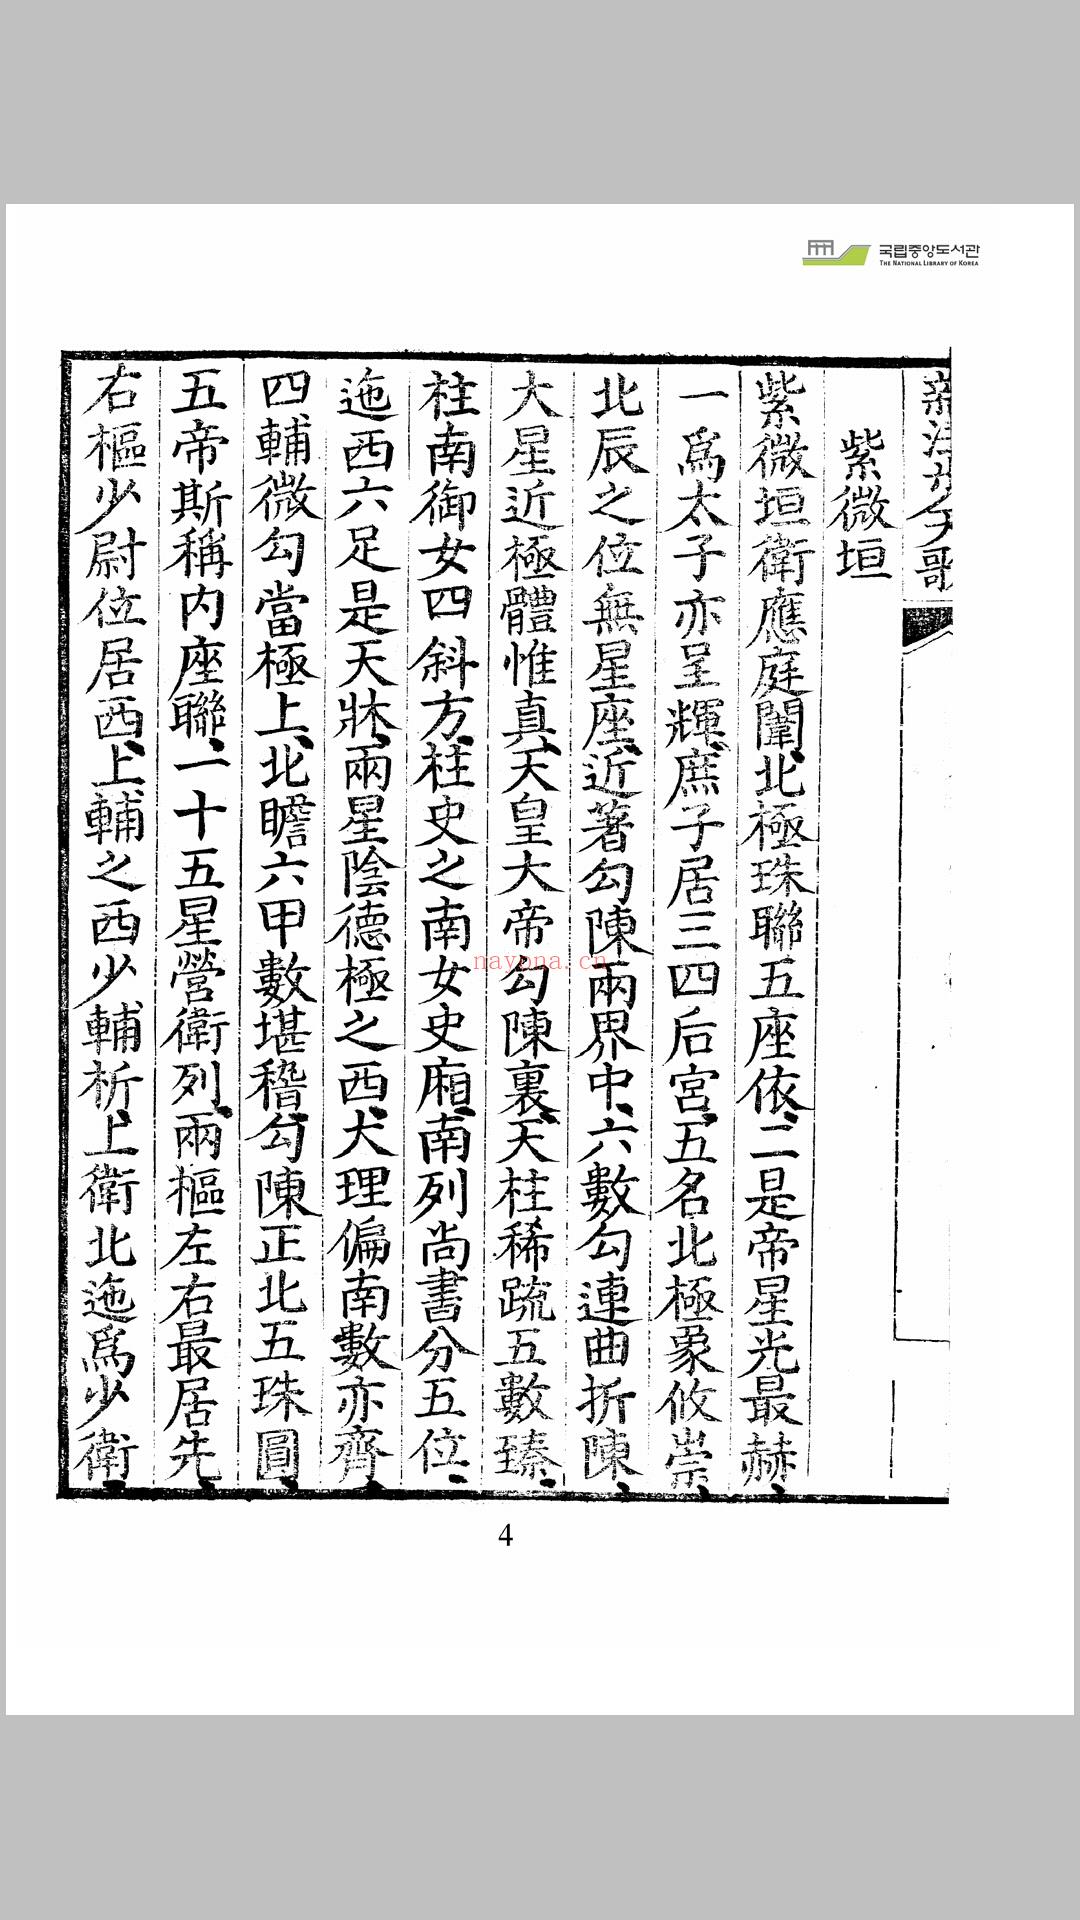 국립중앙도서관
THE NATIONAL LIBRARY OF KOREA
新法步天歌
紫微垣
紫微垣衛應庭闈、北極珠聯五座依、二是帝星光最赫、
一爲太子亦呈輝、庶子居三四后宮、五名北極象攸崇、
北辰之位無星座、近著勾陳兩界中、六數勾連曲折陳、
大星近極體惟真、天皇大帝勾陳裏、天柱稀疏五數臻、
柱南御女四斜方、柱史之南女史廂、南列尚書分五位、
迤西六足是天牀、兩星陰德極之西、大理偏南數亦齊、
四輔微勾當極上、北瞻六甲數堪稽、勾陳正北五珠圓、
五帝斯稱内座聯、一十五星營衛列、兩樞左右最居先、
右樞少尉位居西、上輔之西少輔析、上衛北迤爲少衛、
nayona.cn
4